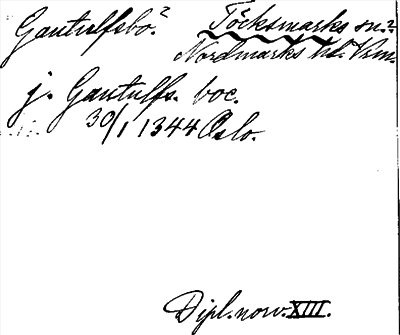 Gautulfsbo? Töcksmarks sn.?
Nordmarks hd. Vrm.
j. Gautulfs. boc.
30/1 1344 Oslo.
Dipl. norv. XIII.